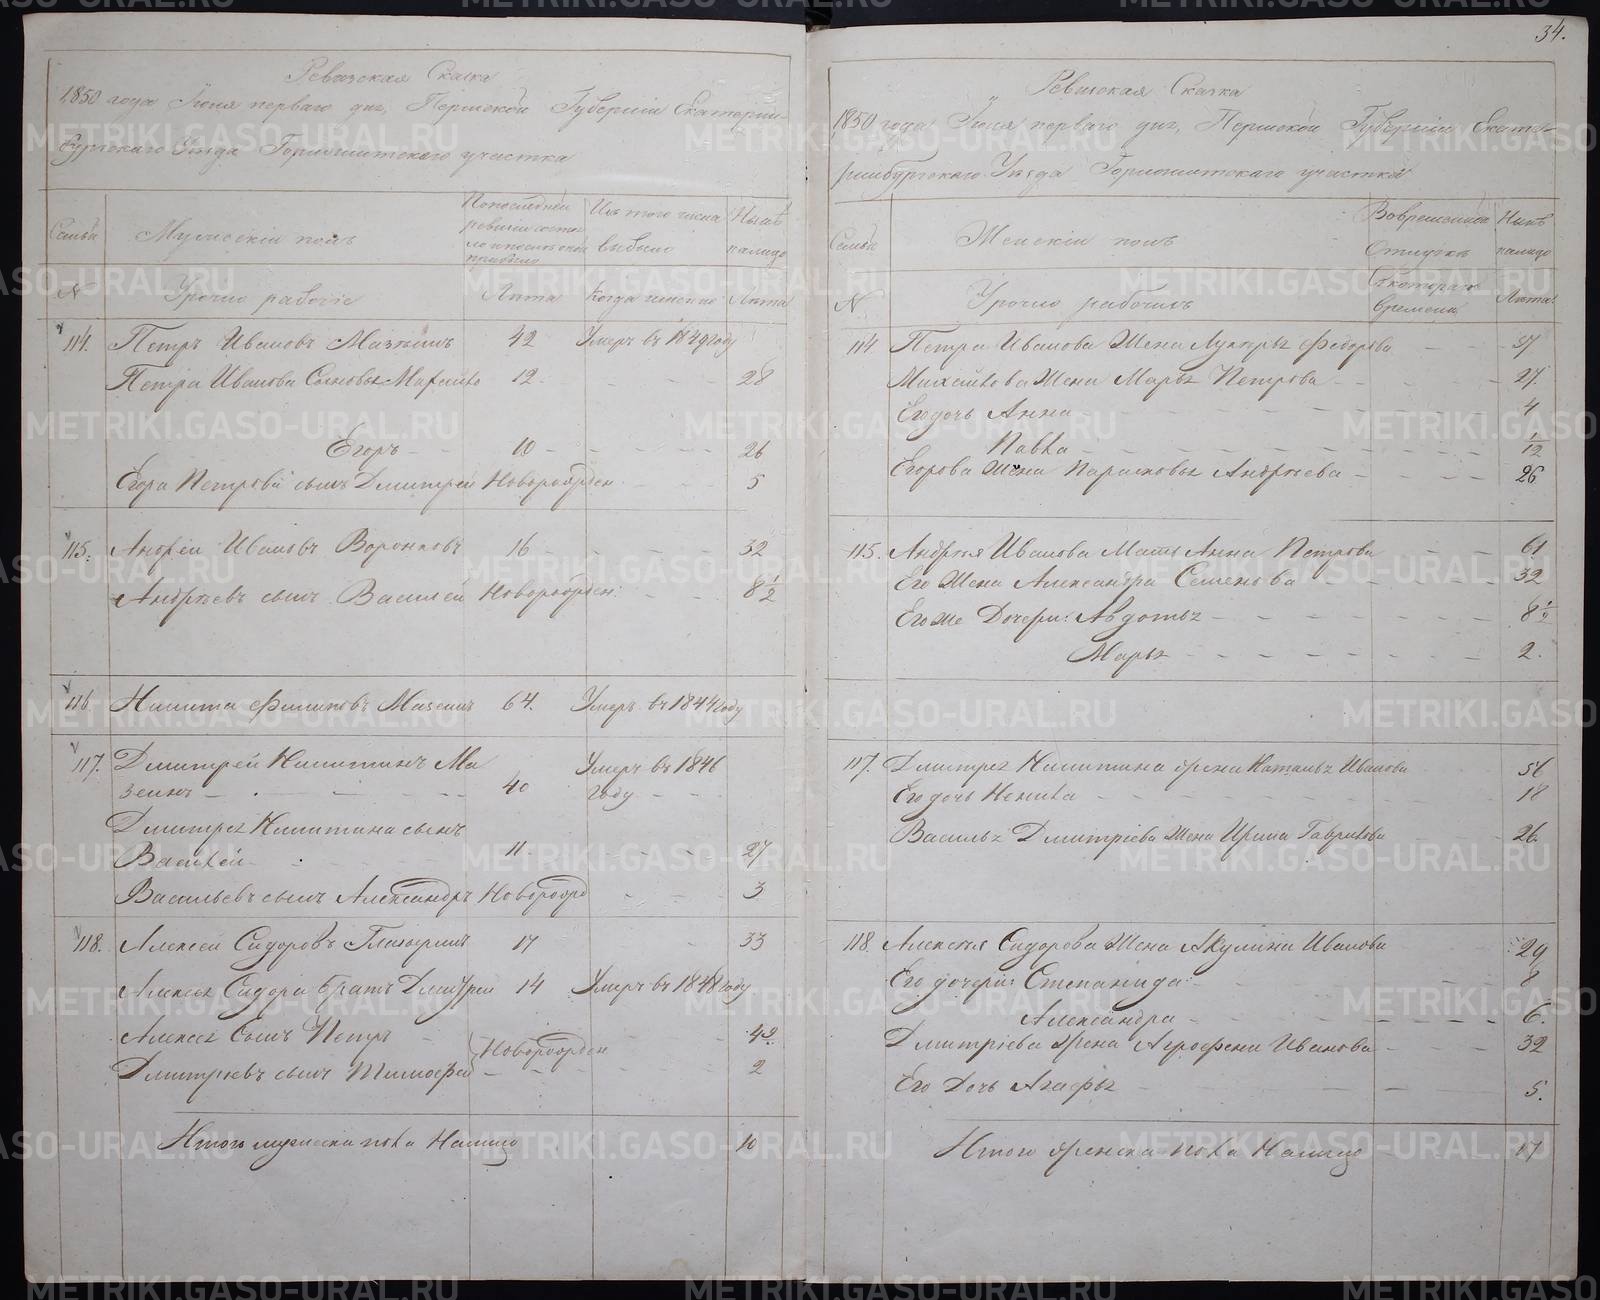 34.
Ревизская Сказка
1850 года Іюня перваго дня, Пермской Губерніи Екатерин-
бургскаго Уезда Горнощитскаго участка
Семьи
Мужескій полъ
По последней ревизіи состояло и после того прибыло
Изъ того числа выбыло
Ныне на лицо
№
Урочно рабочіе
Лета
Когда именно
Лета
114. Петръ Ивановъ Мазеинъ 42 Умеръ въ 1849 году
Петра Иванова Сыновья Михайло 12 28
Егоръ 10 26
Егора Петрова сынъ Дмитрей Новорожден 5
115. Андрей Ивановъ Воронковъ 16 32
Андреевъ сынъ Василей Новорожден 8 1/2
116 Никита Филиповъ Мазеинъ 64. Умеръ въ 1844 году
117. Дмитрей Никитинъ Ма
зеинъ 40 Умеръ въ 1846 году
Дмитрея Никитина сынъ
Василей 11 27
Васильевъ сынъ Александръ Новорожд 3
118. Алексей Сидоровъ 17 33
Алексея Сидора братъ Дмитрей 14 Умеръ въ 1848 году
Алексея Сынъ Петръ
Новорожден
Дмитріевъ сынъ Тимофей 2
Итого мужеска пола Налицо 10
Ревизская Сказка
1850 года Іюня перваго дня, Пермской Губерніи Екате-
ринбургскаго Уезда Горнощитскаго участка
Семьи
Женскій полъ
Во временной отлучке
Ныне на лицо
№
Урочно рабочихъ
Съ котораго времени
Лета
114 Петра Иванова Жена Лукерья Федорова 57
Михайлова Жена Марья Петрова 27.
Его дочь Анна 4
Павла 1/12
Егорова Жена Парасковья Андреева 26
115. Андрея Иванова Мать Анна Петрова 61
Его Жена Александра Семенова 32
Его же Дочери: Авдотья 8 1/2
Марья 2.
117. Дмитрея Никитина жена Наталья Иванова 56
Его дочь Ненила 18
Василья Дмитріева жена Ирина Гаврилова 26.
118. Алексея Сидорова Жена Акулина Иванова 29
Его дочери: Степанида 8
Александра 6.
Дмитріева жена Агрофена Иванова 32
Его Дочь Агафья 5.
Итого Женска пола Налицо 17
METRIKI.GASO-URAL.RU